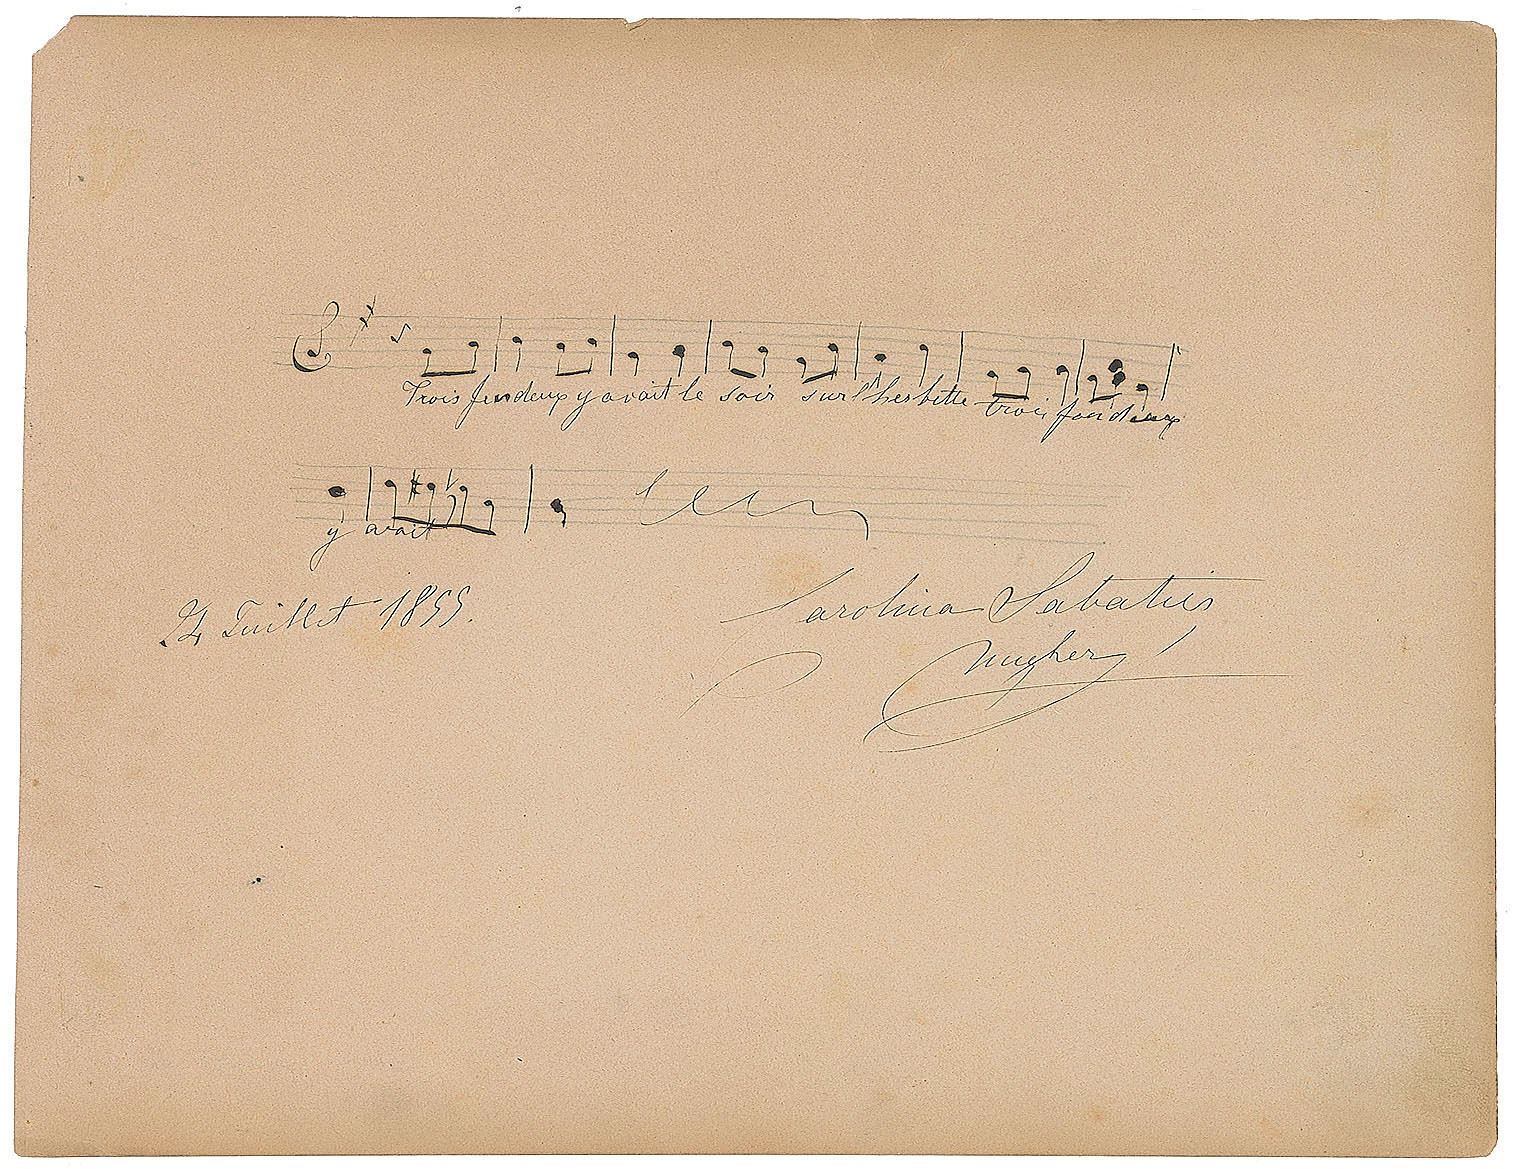 Trois fendeux y avait le soir sur l'herbette trois fendeux
y avait
24 Juillet 1855.
Carolina Sabatier
Ungher